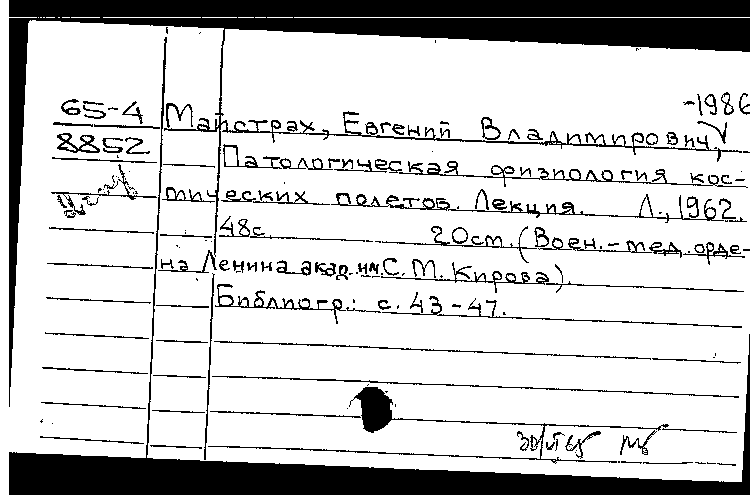 -1986
65-4 Майстрах, Евгений Владимирович,
8852 Патологическая физиология кос-
мических полетов. Лекция. Л., 1962.
48с. 20см. (Воен.-мед. орде-
на Ленина акад. им. С. М. Кирова).
Библиогр.: с. 43-47.